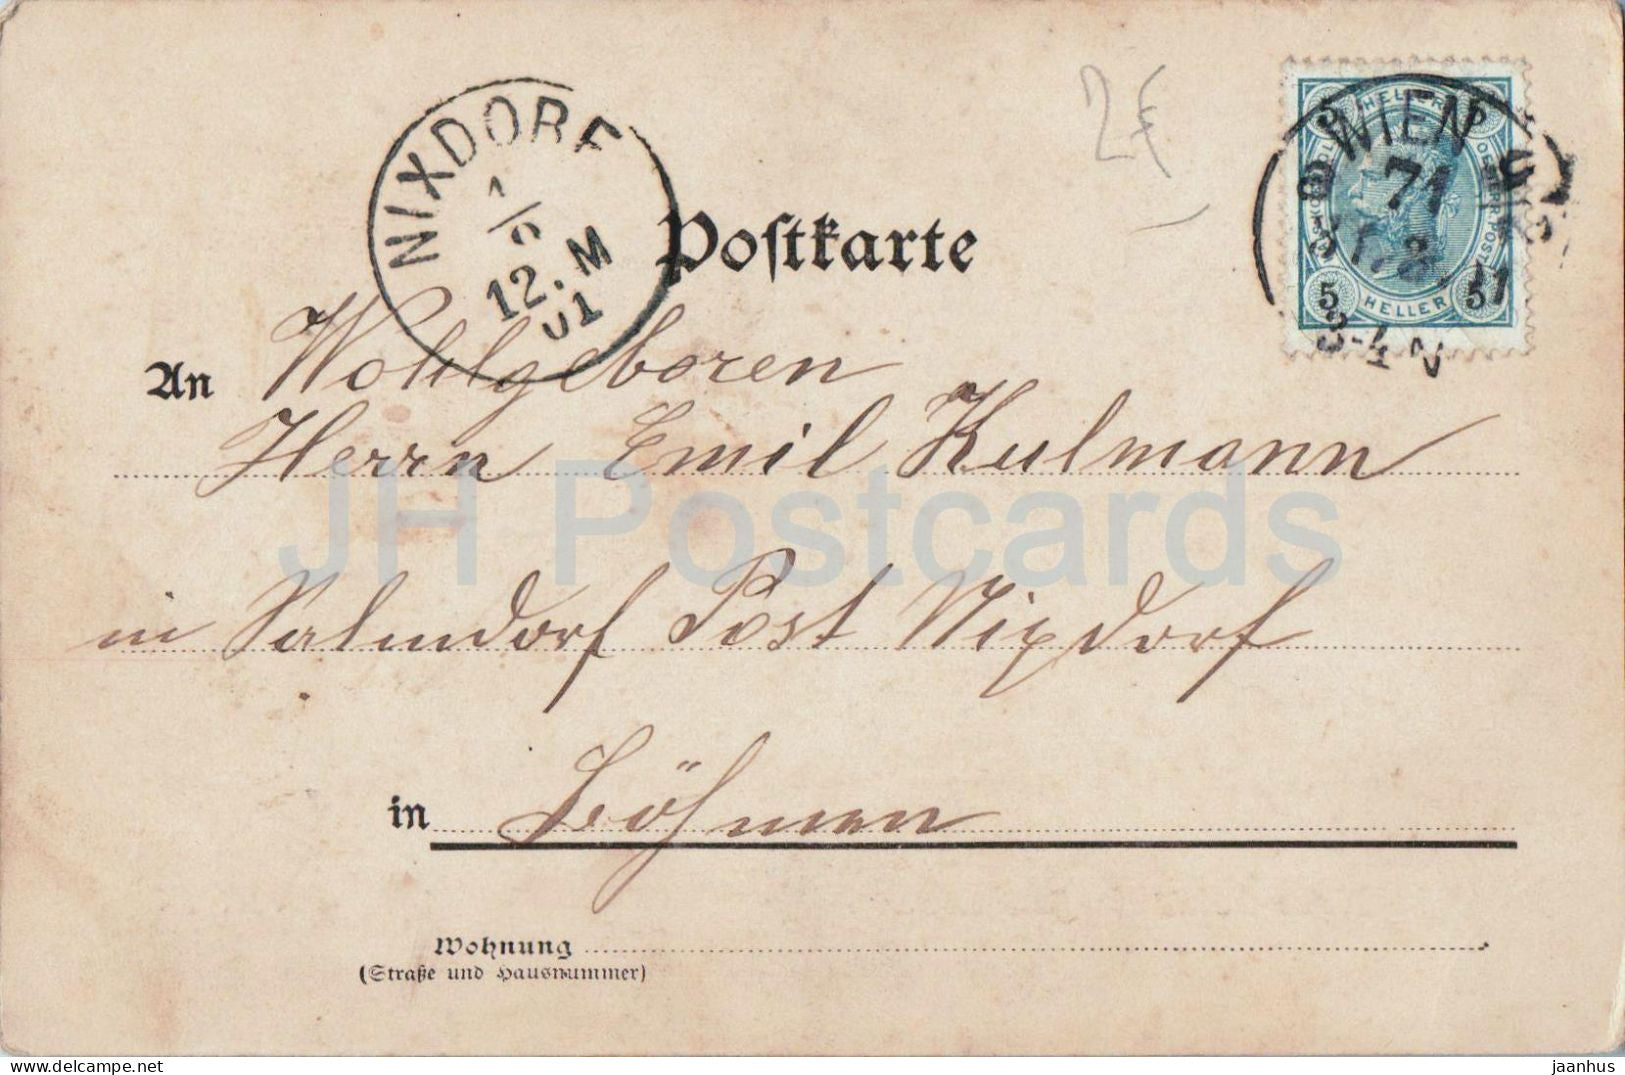 2€
NIXDORF
12. M
01
WIEN
71
5 HELLER 5
3-4 N
Postkarte
An Wohlgeboren
Herrn Emil Kulmann
in Salmdorf Post Nixdorf
in Böhmen
Wohnung
(Straße und Hausnummer)
JH Postcards
www.delcampe.net
jaanhus